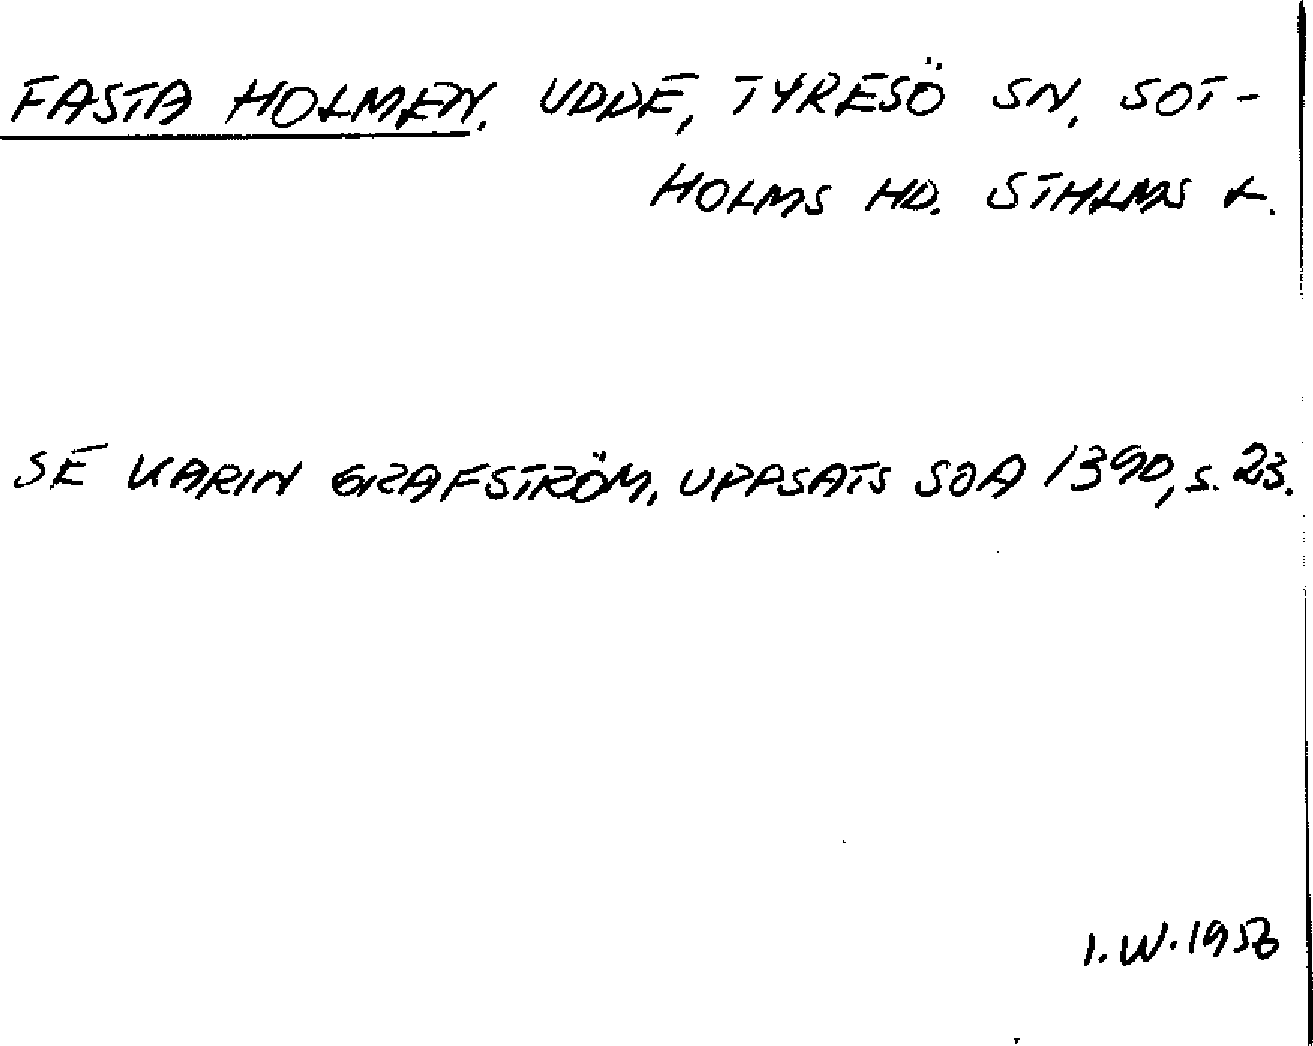 FASTA HOLMEN, UDDE, TYRESÖ SN, SOT-
HOLMS HD. STHLMS L.
SE KARIN GRAFSTRÖM, UPPSATS SOA 1390, s. 23.
I. W. 1956